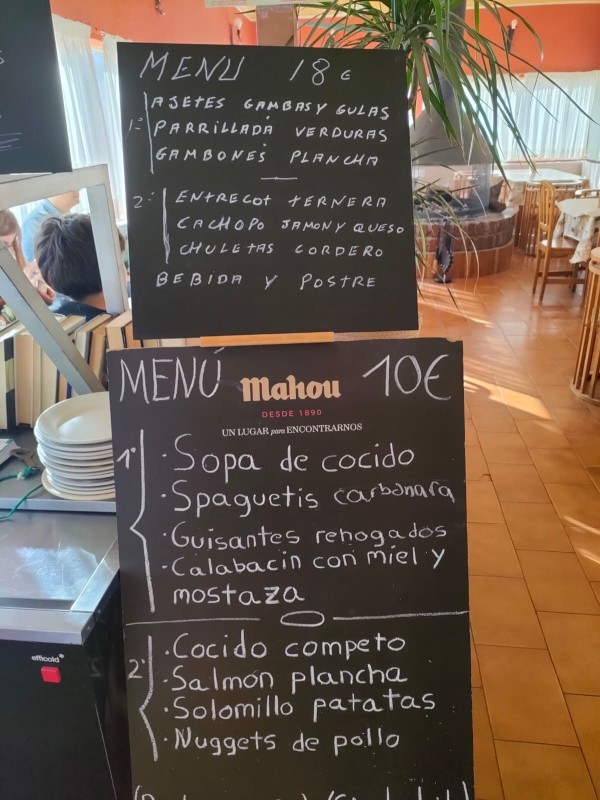 MENU 18€
AJETES GAMBAS Y GULAS
1º PARRILLADA VERDURAS
GAMBONES PLANCHA
2º ENTRECOT TERNERA
CACHOPO JAMON Y QUESO
CHULETAS CORDERO
BEBIDA Y POSTRE
MENÚ mahou 10€
DESDE 1890
UN LUGAR para ENCONTRARNOS
1º · Sopa de cocido
· Spaguetis carbonara
· Guisantes rehogados
· Calabacin con miel y
mostaza
2º · Cocido competo
· Salmón plancha
· Solomillo patatas
· Nuggets de pollo
efficold